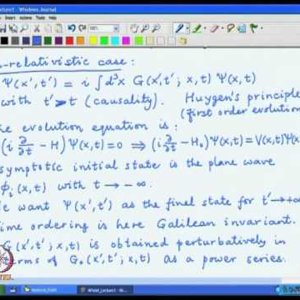 Windows Journal
n-relativistic case:
Ψ(x',t') = i ∫d³x G(x',t';x,t) Ψ(x,t)
with t' > t (causality). Huygen's principle
(first order evolution)
he evolution equation is:
(i ∂/∂t - H) Ψ(x,t) = 0 ⇒ (i ∂/∂t - H₀) Ψ(x,t) = V(x,t) Ψ(x
ymptotic initial state is the plane wave
ϕᵢ(x,t) with t → -∞.
We want Ψ(x',t') as the final state for t' → +∞
ime ordering is here Galilean invariant.
(x',t';x,t) is obtained perturbatively in
erms of G₀(x',t';x,t) as a power series.